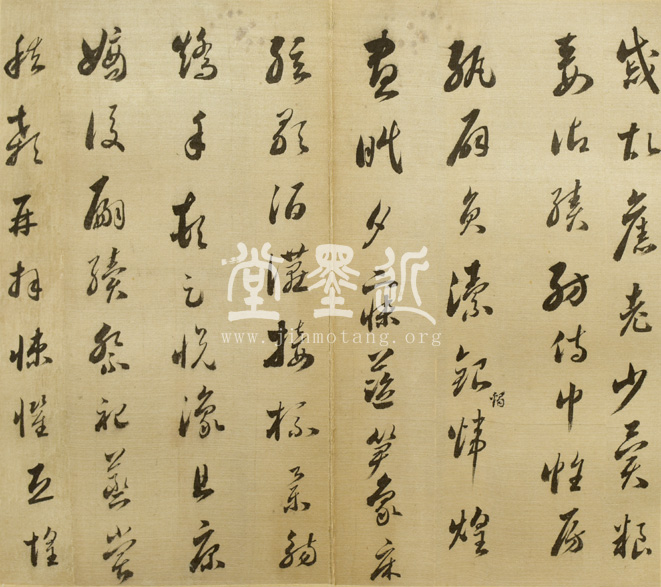 戚故舊老少異糧
妾御績紡侍巾帷房
紈扇員潔銀燭煒煌
晝眠夕寐藍筍象床
弦歌酒讌接杯舉觴
矯手頓足悅豫且康
嫡後嗣續祭祀蒸嘗
稽顙再拜悚懼恐惶
近墨堂
www.jinmotang.org